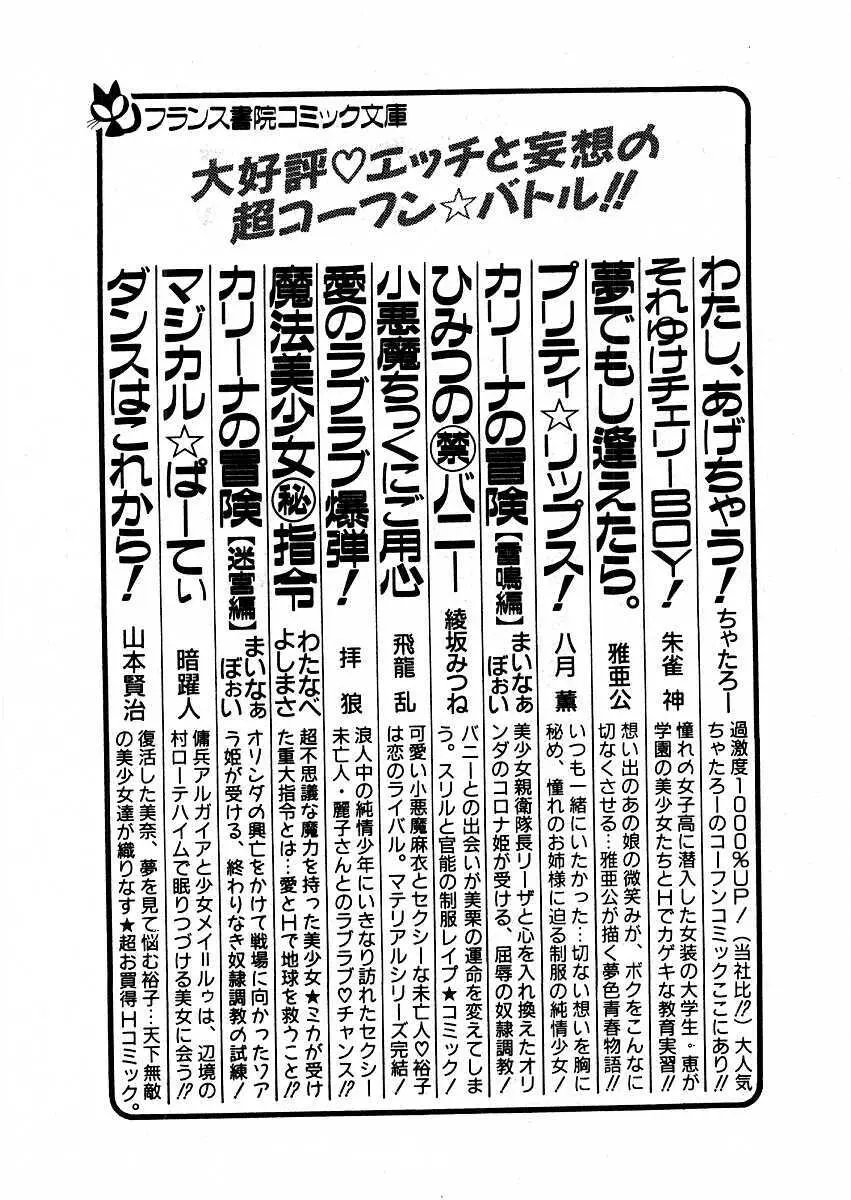 フランス書院コミック文庫
大好評♡エッチと妄想の
超コーフン☆バトル!!
わたし、あげちゃう!
ちゃたろー
過激度1000%UP!(当社比!?)大人気
ちゃたろーのコーフンコミックここにあり!!
それゆけチェリーBOY!
朱雀 神
憧れの女子高に潜入した女装の大学生・恵が
学園の美少女たちとHでカゲキな教育実習!!
夢でもし逢えたら。
雅亜公
想い出のあの娘の微笑みが、ボクをこんなに
切なくさせる…雅亜公が描く夢色青春物語!!
プリティ☆リップス!
八月 薫
いつも一緒にいたかった…切ない想いを胸に
秘め、憧れのお姉様に迫る制服の純情少女!
カリーナの冒険【雷鳴編】
まいなぁ
ぼぉい
美少女親衛隊長リーザと心を入れ換えたオリ
ンダのコロナ姫が受ける、屈辱の奴隷調教!
ひみつの㊙バニー
綾坂みつね
バニーとの出会いが美栗の運命を変えてしま
う。スリルと官能の制服レイプ★コミック!
小悪魔ちっくにご用心
飛龍 乱
可愛い小悪魔麻衣とセクシーな未亡人♡裕子
は恋のライバル。マテリアルシリーズ完結!
愛のラブラブ爆弾!
拝 狼
浪人中の純情少年にいきなり訪れたセクシー
未亡人・麗子さんとのラブラブ♡チャンス!?
魔法美少女㊙指令
わたなべ
よしまさ
超不思議な魔力を持った美少女★ミカが受け
た重大指令とは…愛とHで地球を救うこと!?
カリーナの冒険【迷宮編】
まいなぁ
ぼぉい
オリンダの興亡をかけて戦場に向かったソア
ラ姫が受ける、終わりなき奴隷調教の試練!
マジカル☆ぱーてぃ
暗躍人
傭兵アルガイアと少女メイ=ルゥは、辺境の
村ローテハイムで眠りつづける美女に会う!?
ダンスはこれから!
山本賢治
復活した美奈、夢を見て悩む裕子…天下無敵
の美少女達が織りなす★超お買得Hコミック。